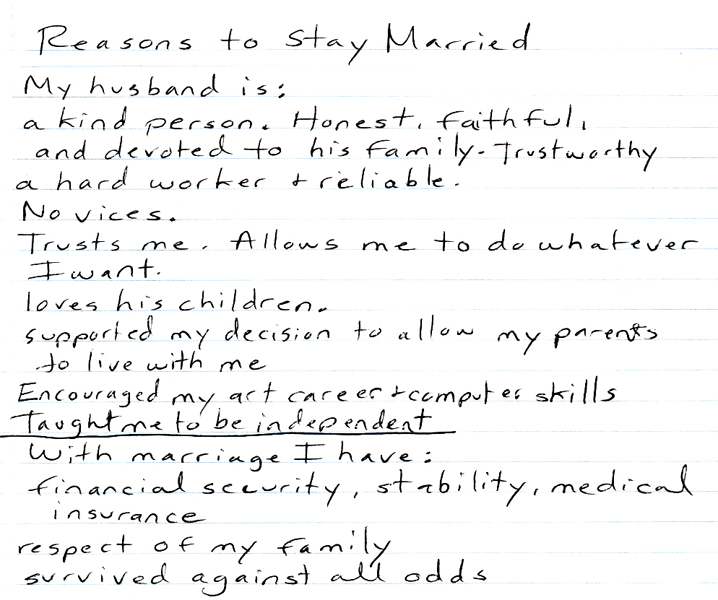 Reasons to Stay Married
My husband is:
a kind person. Honest, faithful,
and devoted to his family. Trustworthy
a hard worker + reliable.
No vices.
Trusts me. Allows me to do whatever
I want.
loves his children.
supported my decision to allow my parents
to live with me
Encouraged my art career + computer skills
Taught me to be independent
With marriage I have:
financial security, stability, medical
insurance
respect of my family
survived against all odds